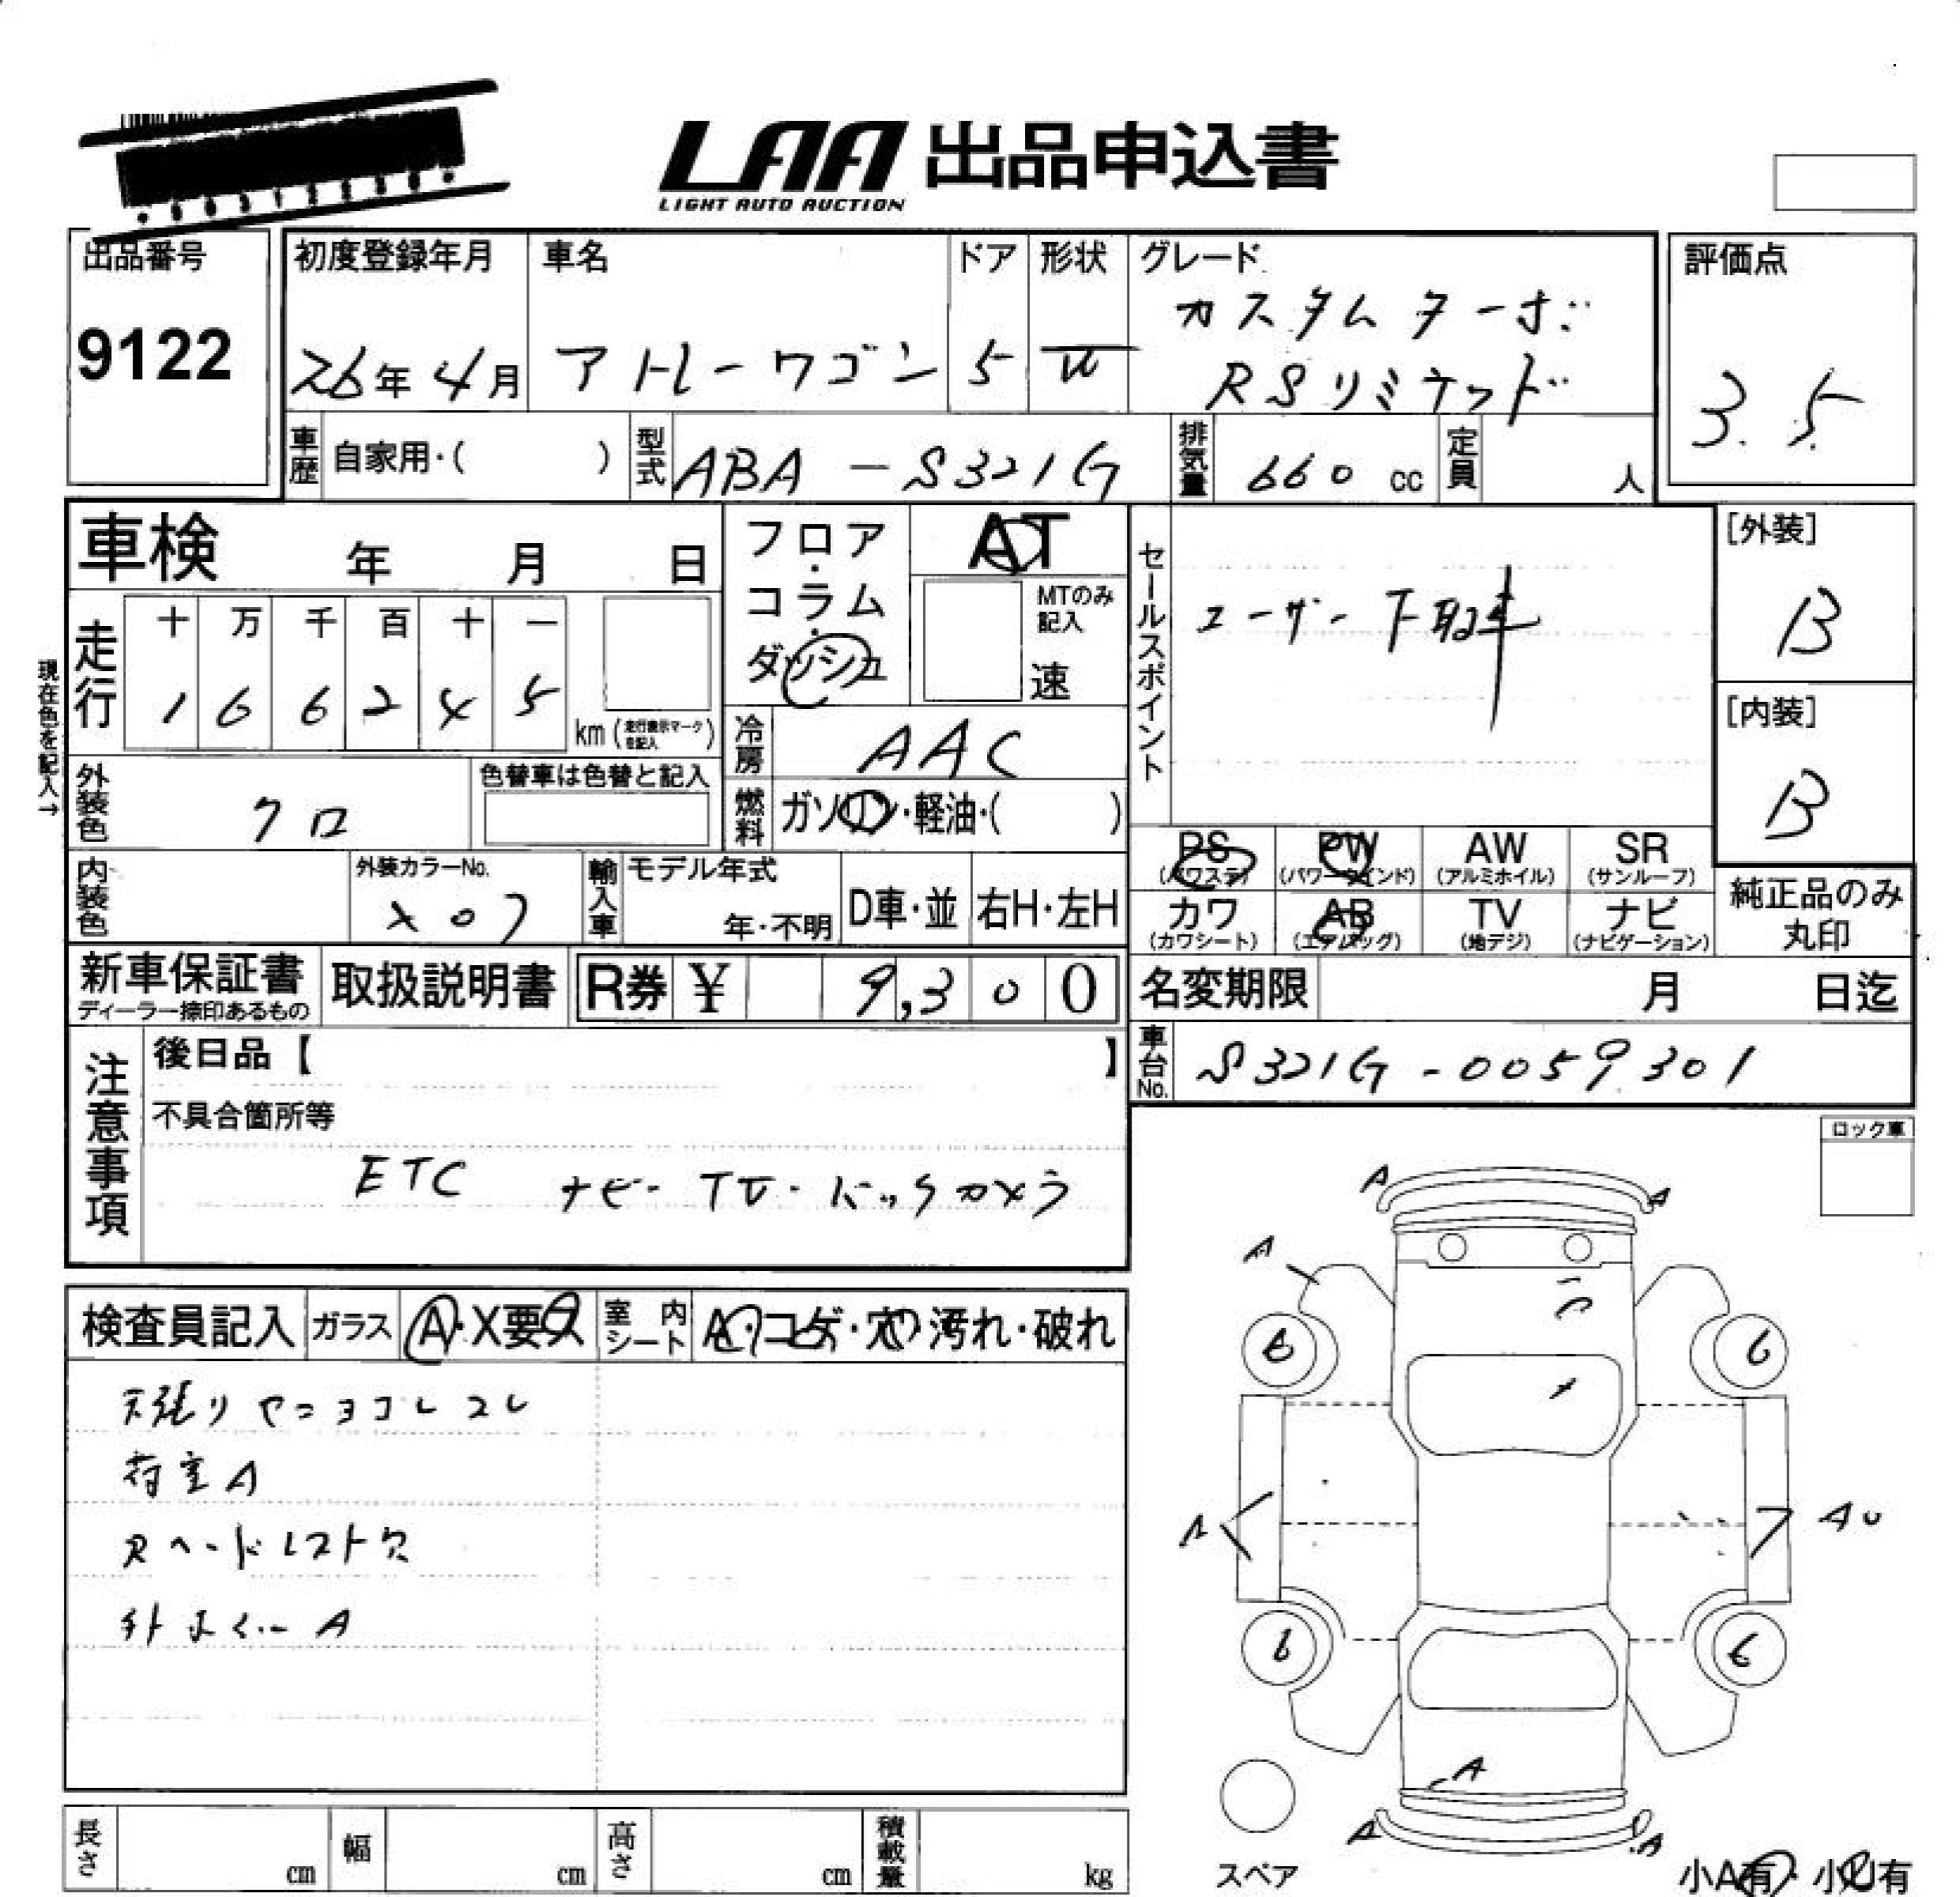 LAA 出品申込書
LIGHT AUTO AUCTION
出品番号
9122
初度登録年月
26年 4月
車名
アトレーワゴン
ドア
5
形状
W
グレード
カスタムターボ
RSリミテッド
評価点
3.5
車歴 自家用・( )
型式 ABA-S321G
排気量 660 cc
定員 人
車検 年 月 日
フロア・コラム・ダッシュ
AT
MTのみ記入
速
セールスポイント
ユーザー下取車
[外装]
B
[内装]
B
現在色を記入→
走行
十 万 千 百 十 一
1 6 6 2 4 5
km (走行表示マークを記入)
冷房 AAC
外装色 クロ
色替車は色替と記入
燃料 ガソリン・軽油・( )
内装色
外装カラーNo.
X07
輸入車
モデル年式
年・不明
D車・並
右H・左H
PS (パワステ)
PW (パワーウインド)
AW (アルミホイル)
SR (サンルーフ)
カワ (カワシート)
AB (エアバッグ)
TV (地デジ)
ナビ (ナビゲーション)
純正品のみ
丸印
新車保証書
ディーラー捺印あるもの
取扱説明書
R券 ¥ 9,300
名変期限 月 日迄
車台No. S321G-0059301
注意事項
後日品【 】
不具合箇所等
ETC ナビ・TV・バックカメラ
ロック車
検査員記入
ガラス A・X要・ス
室内シート A・コゲ・穴・汚れ・破れ
天張りヤニヨゴレコレ
荷室A
Rヘッドレスト欠
A
A
A
A
6
6
A
AU
6
6
A
A
スペア
小A有・小U有
長さ cm
幅 cm
高さ cm
積載量 kg